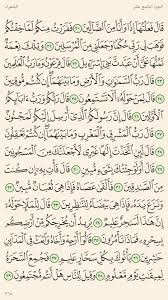 الجزء التاسع عشر الشعراء
قَالَ فَعَلْتُهَا إِذًا وَأَنَا۠ مِنَ ٱلضَّآلِّينَ ٢٠ فَفَرَرْتُ مِنكُمْ لَمَّا خِفْتُكُمْ
فَوَهَبَ لِى رَبِّى حُكْمًا وَجَعَلَنِى مِنَ ٱلْمُرْسَلِينَ ٢١ وَتِلْكَ نِعْمَةٌ
تَمُنُّهَا عَلَىَّ أَنْ عَبَّدتَّ بَنِىٓ إِسْرَٰٓءِيلَ ٢٢ قَالَ فِرْعَوْنُ وَمَا رَبُّ ٱلْعَٰلَمِينَ
٢٣ قَالَ رَبُّ ٱلسَّمَٰوَٰتِ وَٱلْأَرْضِ وَمَا بَيْنَهُمَآ إِن كُنتُم مُّوقِنِينَ
٢٤ قَالَ لِمَنْ حَوْلَهُۥٓ أَلَا تَسْتَمِعُونَ ٢٥ قَالَ رَبُّكُمْ وَرَبُّ ءَابَآئِكُمُ
ٱلْأَوَّلِينَ ٢٦ قَالَ إِنَّ رَسُولَكُمُ ٱلَّذِىٓ أُرْسِلَ إِلَيْكُمْ لَمَجْنُونٌ ٢٧
قَالَ رَبُّ ٱلْمَشْرِقِ وَٱلْمَغْرِبِ وَمَا بَيْنَهُمَآ إِن كُنتُمْ تَعْقِلُونَ ٢٨
قَالَ لَئِنِ ٱتَّخَذْتَ إِلَٰهًا غَيْرِى لَأَجْعَلَنَّكَ مِنَ ٱلْمَسْجُونِينَ
٢٩ قَالَ أَوَلَوْ جِئْتُكَ بِشَىْءٍ مُّبِينٍ ٣٠ قَالَ فَأْتِ بِهِۦٓ إِن كُنتَ مِنَ
ٱلصَّٰدِقِينَ ٣١ فَأَلْقَىٰ عَصَاهُ فَإِذَا هِىَ ثُعْبَانٌ مُّبِينٌ ٣٢ وَنَزَعَ يَدَهُۥ
فَإِذَا هِىَ بَيْضَآءُ لِلنَّٰظِرِينَ ٣٣ قَالَ لِلْمَلَإِ حَوْلَهُۥٓ
إِنَّ هَٰذَا لَسَٰحِرٌ عَلِيمٌ ٣٤ يُرِيدُ أَن يُخْرِجَكُم مِّنْ أَرْضِكُم
بِسِحْرِهِۦ فَمَاذَا تَأْمُرُونَ ٣٥ قَالُوٓا۟ أَرْجِهْ وَأَخَاهُ وَٱبْعَثْ فِى ٱلْمَدَآئِنِ
حَٰشِرِينَ ٣٦ يَأْتُوكَ بِكُلِّ سَحَّارٍ عَلِيمٍ ٣٧ فَجُمِعَ ٱلسَّحَرَةُ
لِمِيقَٰتِ يَوْمٍ مَّعْلُومٍ ٣٨ وَقِيلَ لِلنَّاسِ هَلْ أَنتُم مُّجْتَمِعُونَ ٣٩
٣٦٨